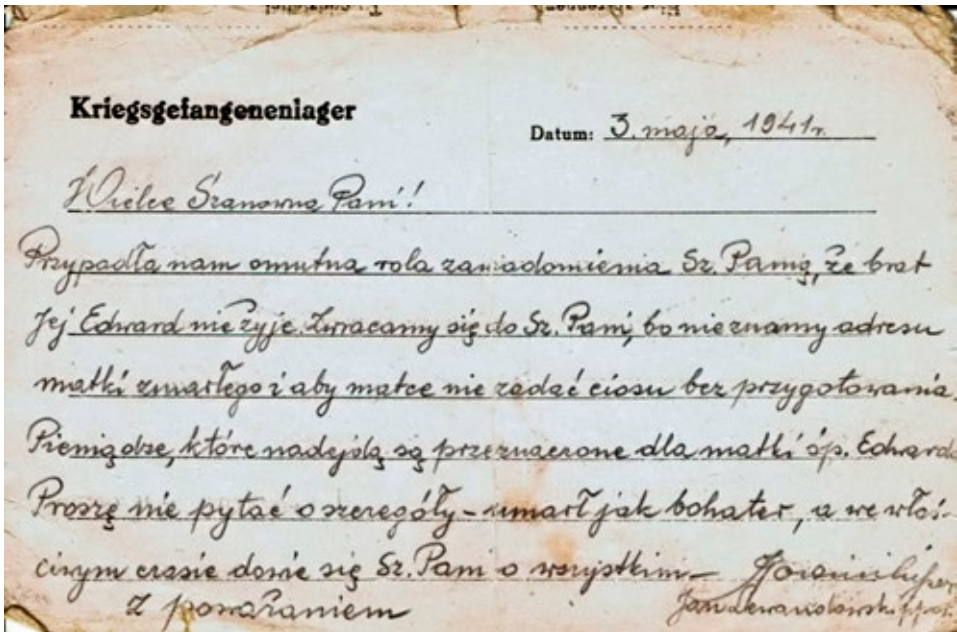 Kriegsgefangenenlager
Datum: 3. maja, 1941r.
Wielce Szanowna Pani!
Przypadła nam smutna rola zawiadomienia Sz. Panią, że brat
Jej Edward nie żyje. Zwracamy się do Sz. Pani, bo nie znamy adresu
matki zmarłego i aby matce nie zadać ciosu bez przygotowania.
Pieniądze, które nadejdą są przeznaczone dla matki śp. Edwarda
Proszę nie pytać o szczegóły – umarł jak bohater, a we właś-
ciwym czasie dowie się Sz. Pani o wszystkim –
Z poważaniem
Jan Lewandowski ppor.